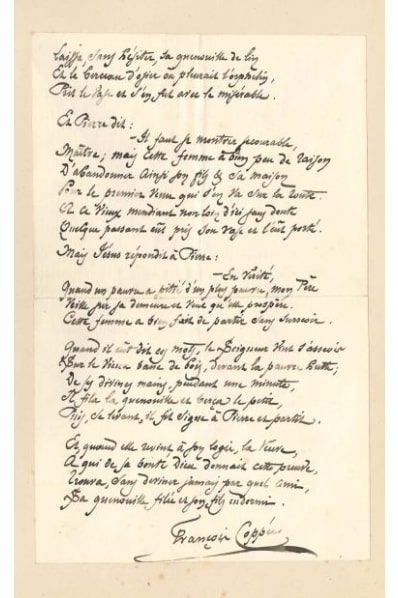 Laissa, sans hésiter, sa quenouille de lin
Et le berceau d'osier où pleurait l'orphelin,
Prit le vase et s'en fut avec le misérable.
Et Pierre dit :
— Il faut se montrer secourable,
Maître ; mais cette femme a bien peu de raison
D'abandonner ainsi son fils & sa maison
Pour le premier venu qui s'en va sur la route.
A ce vieux mendiant non loin d'ici sans doute
Quelque passant eût pris son vase et l'eût porté.
Mais Jésus répondit à Pierre :
— En vérité,
Quand un pauvre a pitié d'un plus pauvre, mon Père
Veille sur sa demeure et veut qu'elle prospère.
Cette femme a bien fait de partir sans surseoir.
Quand il eut dit ces mots, le Seigneur vint s'asseoir
Sur le vieux banc de bois, devant la pauvre hutte ;
De ses divines mains, pendant une minute,
Il fila la quenouille et berça le petit,
Puis, se levant, il fit signe à Pierre et partit.
Et, quand elle revint à son logis, la Veuve,
A qui de sa bonté Dieu donnait cette preuve,
Trouva, sans deviner jamais par quel ami,
Sa quenouille filée et son fils endormi.
François Coppée